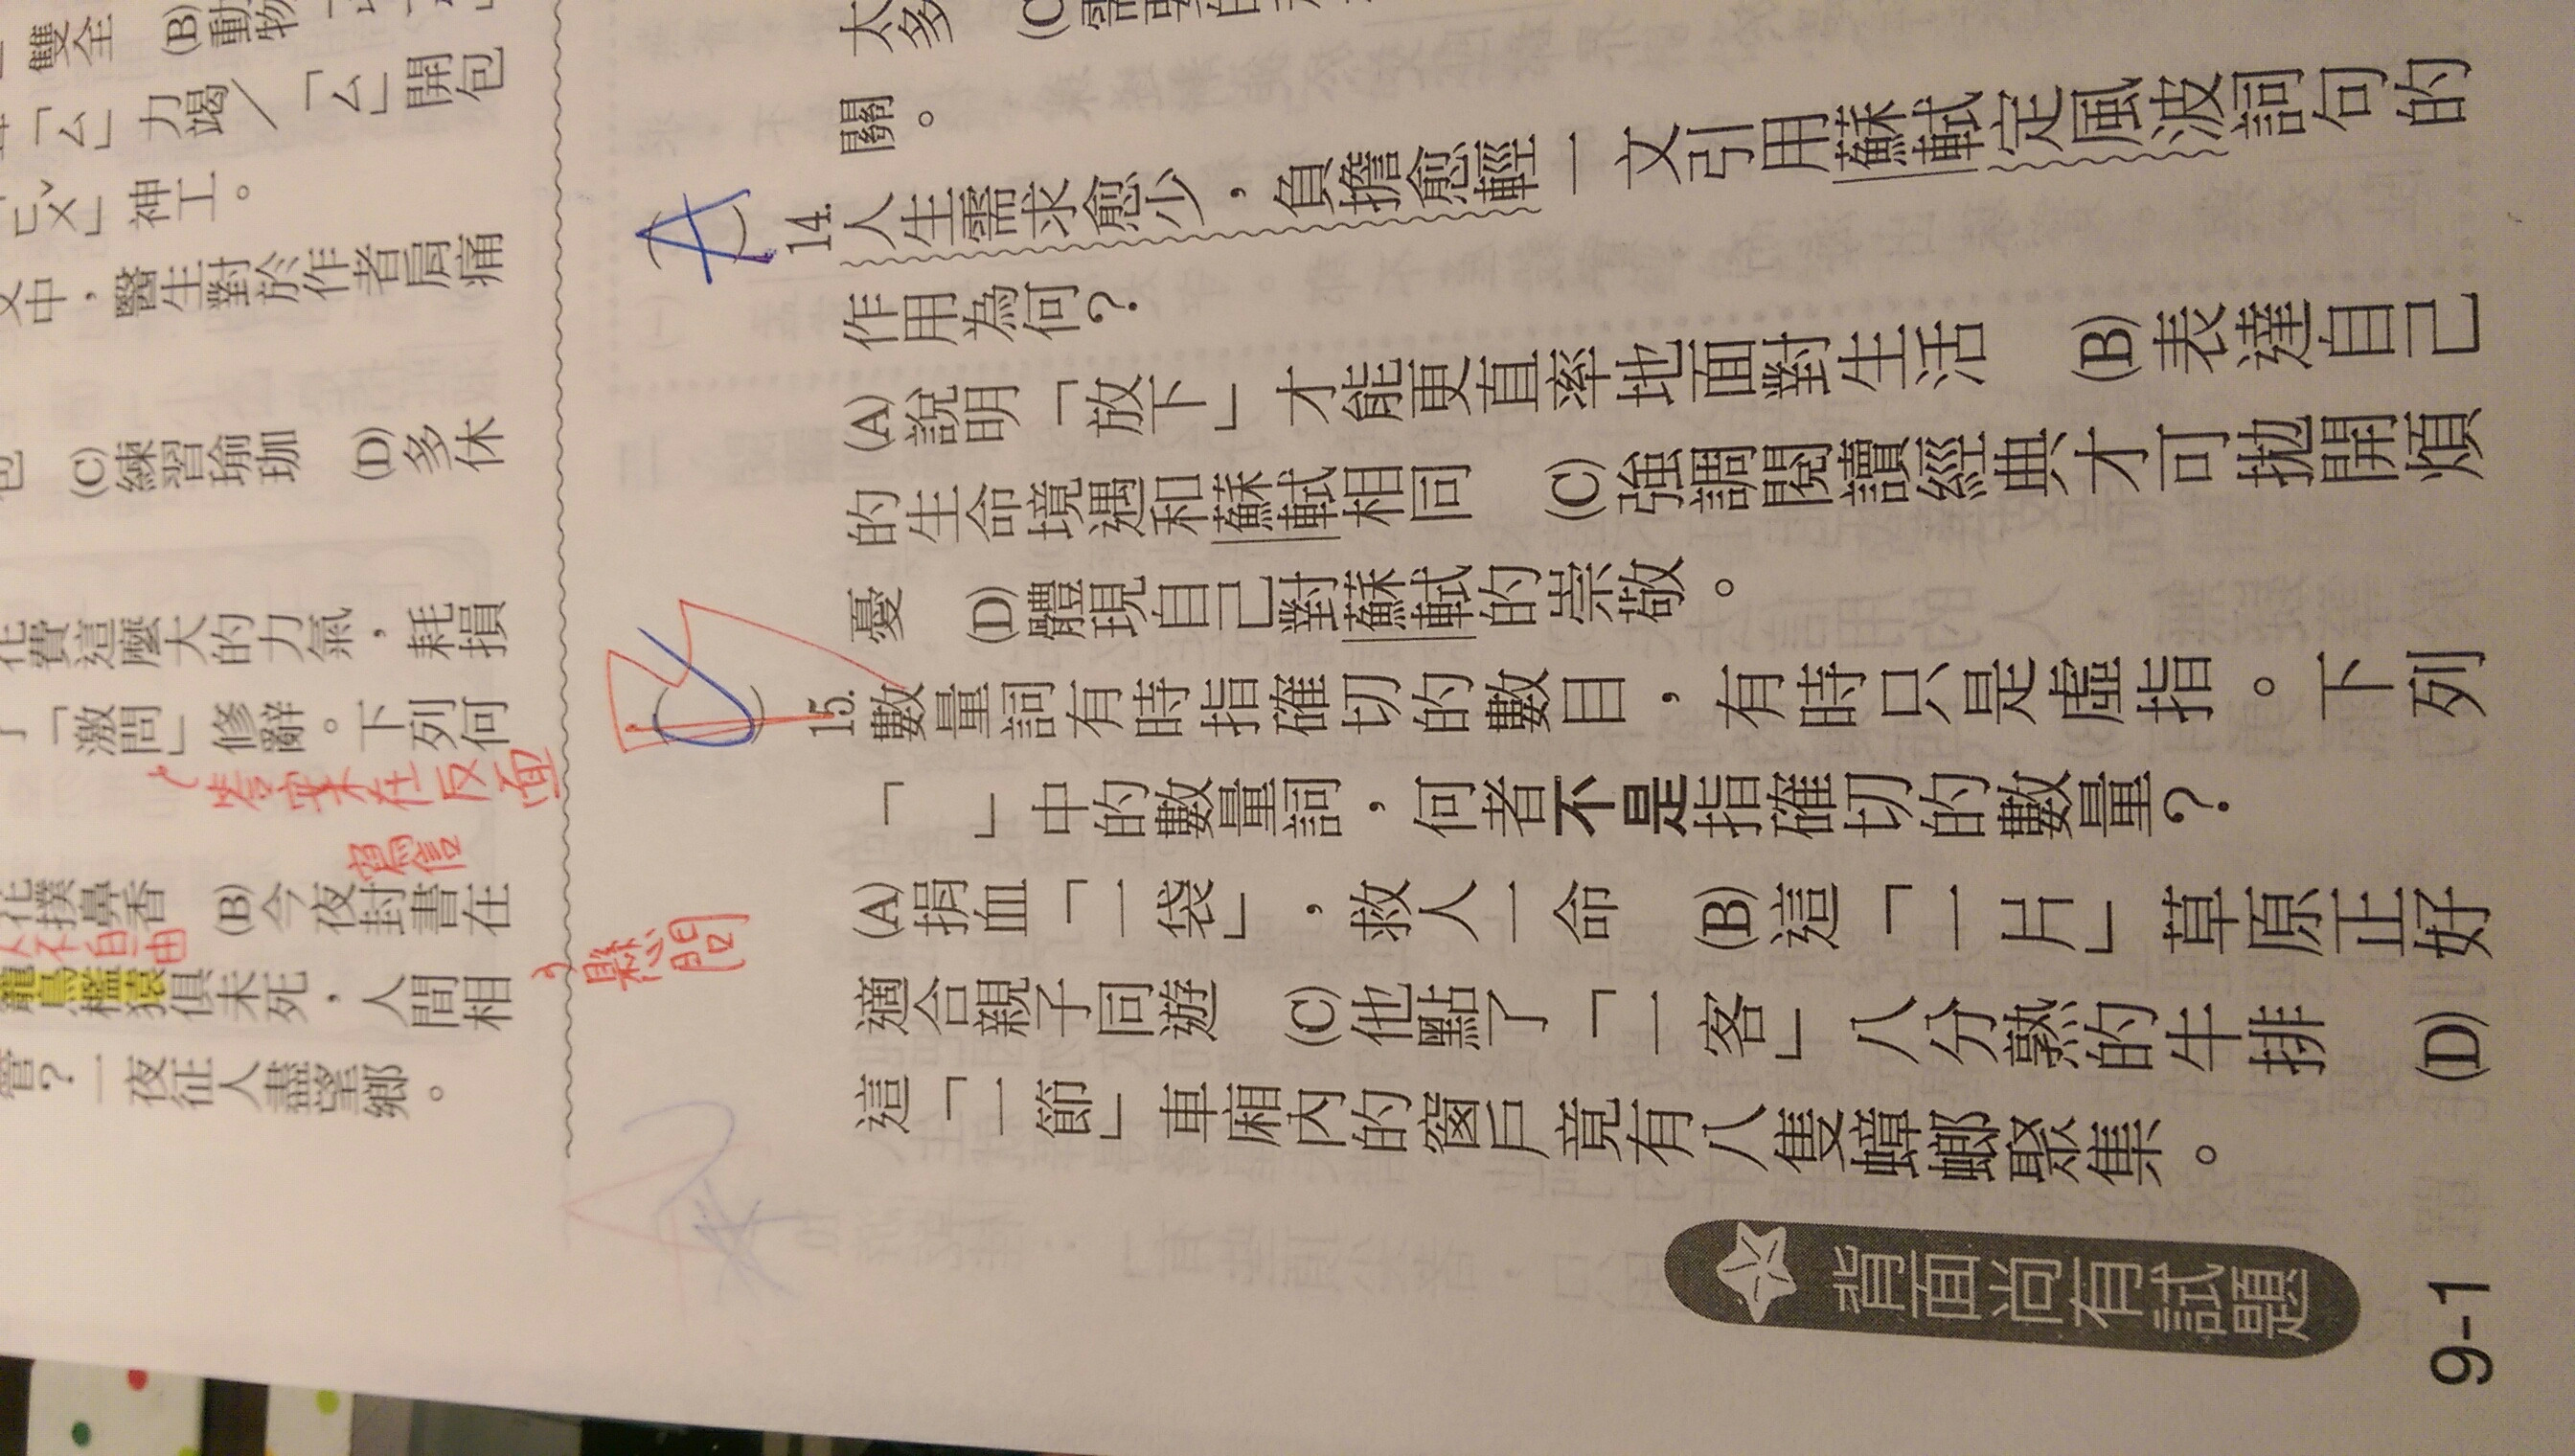 雙全 (B)動物
「ㄙ」力竭／「ㄙ」開包
神工。
文中，醫生對於作者肩痛
(C)練習瑜珈 (D)多休
花費這麼大的力氣，耗損
了「激問」修辭。下列何
答案在反面
寫信
花撲鼻香 (B)今夜封書在
人不自由
籠鳥檻猿俱未死，人間相
管？一夜征人盡望鄉。
懸問
太多
關。
A
14. 人生需求愈少，負擔愈輕一文引用蘇軾定風波詞句的
作用為何？
(A)說明「放下」才能更直率地面對生活 (B)表達自己
的生命境遇和蘇軾相同 (C)強調閱讀經典才可拋開煩
憂 (D)體現自己對蘇軾的崇敬。
15. 數量詞有時指確切的數目，有時只是虛指。下列
「 」中的數量詞，何者不是指確切的數量？
(A)捐血「一袋」，救人一命 (B)這「一片」草原正好
適合親子同遊 (C)他點了「一客」八分熟的牛排 (D)
這「一節」車廂內的窗戶竟有八隻蟑螂聚集。
背面尚有試題
9-1